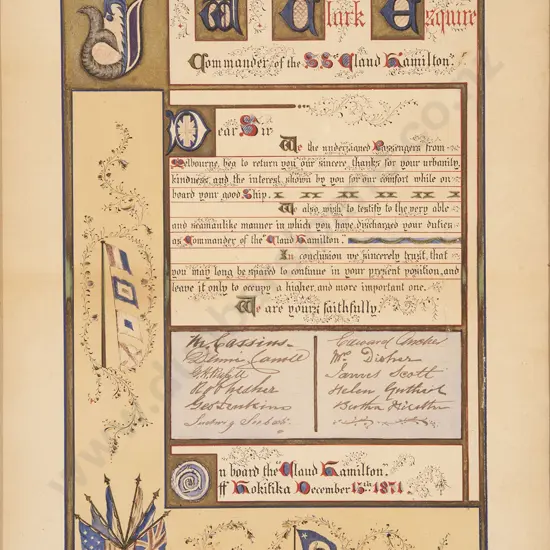 J W Clark Esquire
Commander of the S.S. "Claud Hamilton."
Dear Sir
We the undersigned Passengers from
Melbourne, beg to return you our sincere thanks for your urbanity,
kindness, and the interest shown by you for our comfort while on
board your good Ship.
We also wish to testify to the very able
and seamanlike manner in which you have discharged your duties
as Commander of the "Claud Hamilton."
In conclusion we sincerely trust, that
you may long be spared to continue in your present position, and
leave it only to occupy a higher, and more important one.
We are yours faithfully.
M. Cassins.
Geo Jenkins
Edward
Mrs
James Scott
Helen
Bertha
On board the "Claud Hamilton".
Off Hokitika December 15th 1871.